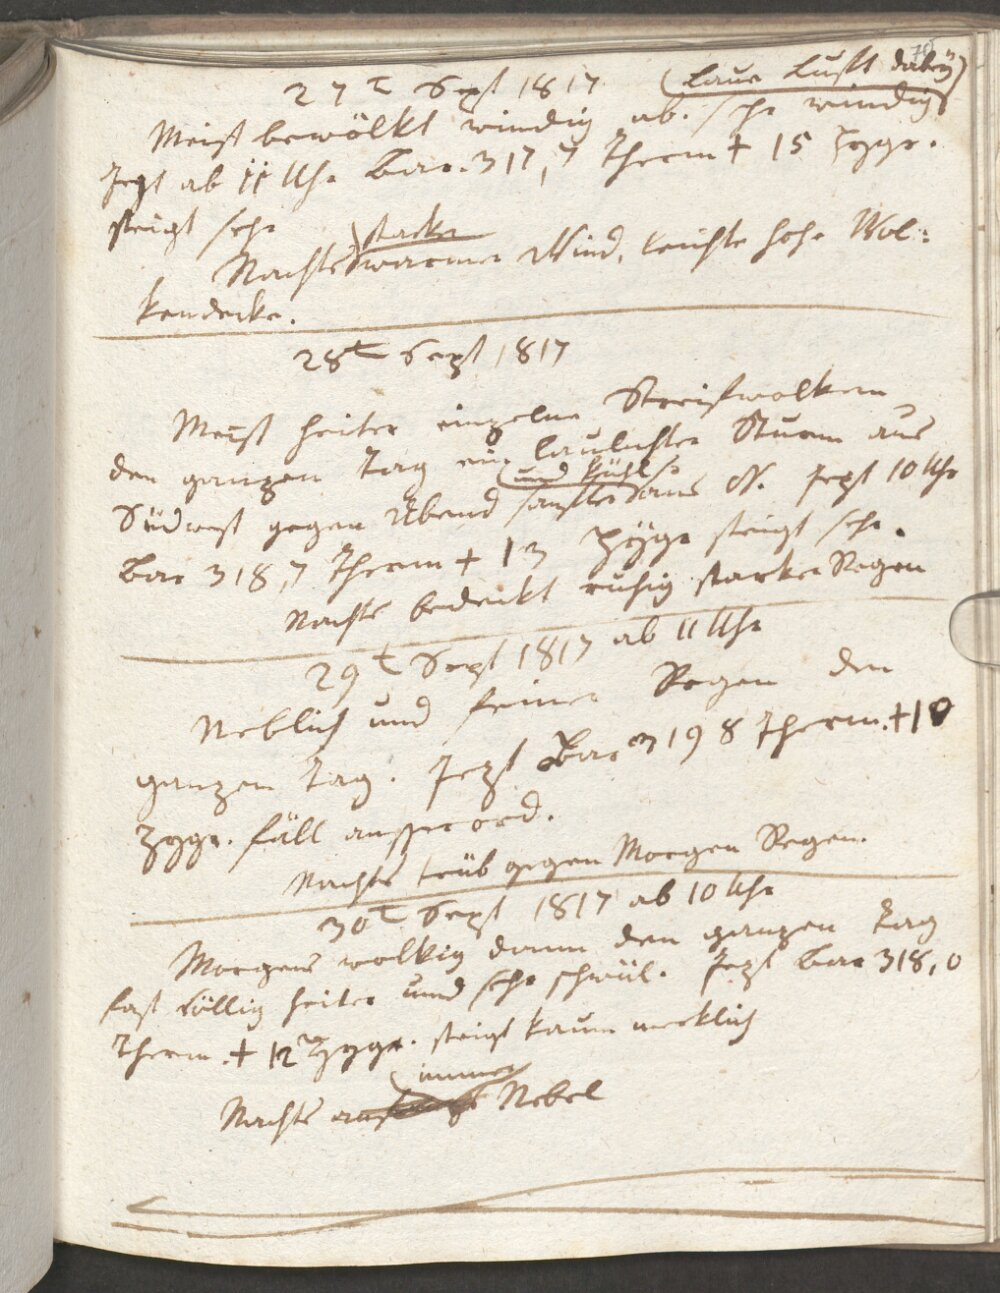 70
27t Sept 1817 (laue Luft dabey)
Meist bewölkt windig ab. sehr windig
Jezt ab 11 Uhr Bar. 317,7 Therm + 15 Hygr.
steigt sehr
starker
Nachts warmer Wind, leichte hohe Wol:
kendecke.
28t Sept 1817
Meist heiter einzelne Streifwolken
den ganzen Tag ein laulichter Sturm aus
und kühler
Südwest gegen Abend sanfter aus W. Jezt 10 Uhr
Bar 318,7 Therm + 13 Hygr steigt sehr.
Nachts bedeckt ruhig starker Regen
29t Sept 1817 ab 11 Uhr
Neblich und feiner Regen den
ganzen Tag. Jezt Bar 319 8 Therm. +10
Hygr. fällt ausserord.
Nachts trüb gegen Morgen Regen.
30t Sept 1817 ab 10 Uhr
Morgens wolkig dann den ganzen Tag
fast völlig heiter und sehr schwül. Jezt Bar 318,0
Therm. + 12 Hygr. steigt kaum merklich
immer
Nachts Nebel